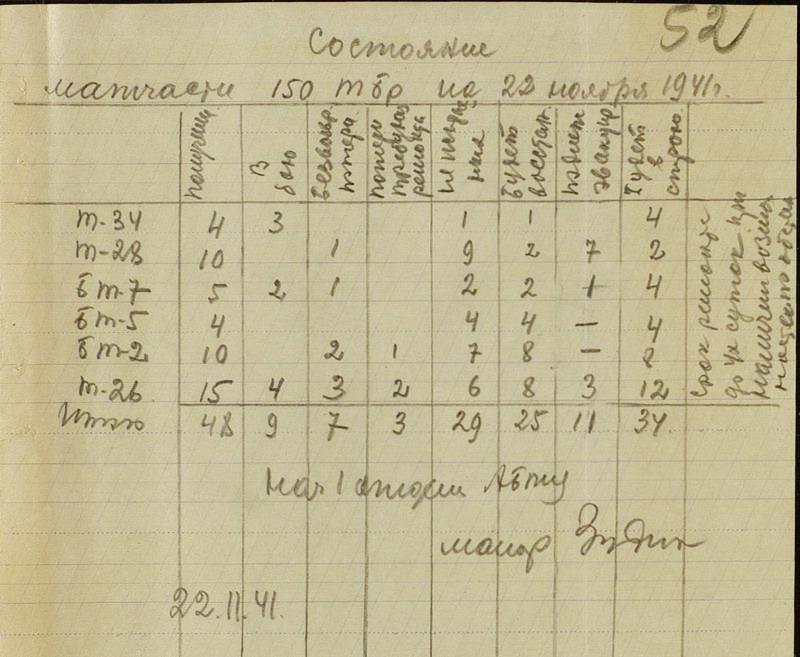 52
Состояние
матчасти 150 тбр на 22 ноября 1941г.
получено В бою Безвозвр. потери потери требующ. ремонта Будет восстан. подлеж. эвакуир. Будет в строю
Т-34 4 3 1 1 4
Т-28 10 1 9 2 7 2
БТ-7 5 2 1 2 2 1 4
БТ-5 4 4 4 — 4
БТ-2 10 2 1 7 8 — 8
Т-26 15 4 3 2 6 8 3 12
Итого 48 9 7 3 29 25 11 34
Срок ремонта
до суток при
наличии
Нач 1 отдела АБТУ
майор Зудин
22.11.41.